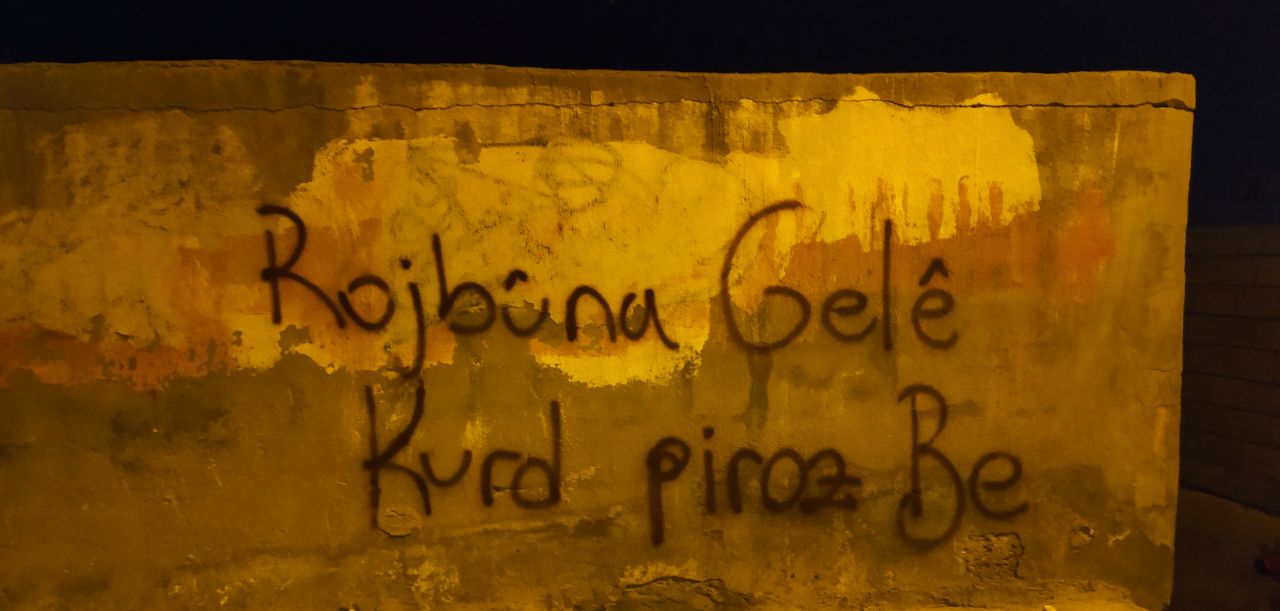 Rojbûna Gelê
Kurd piroz Be